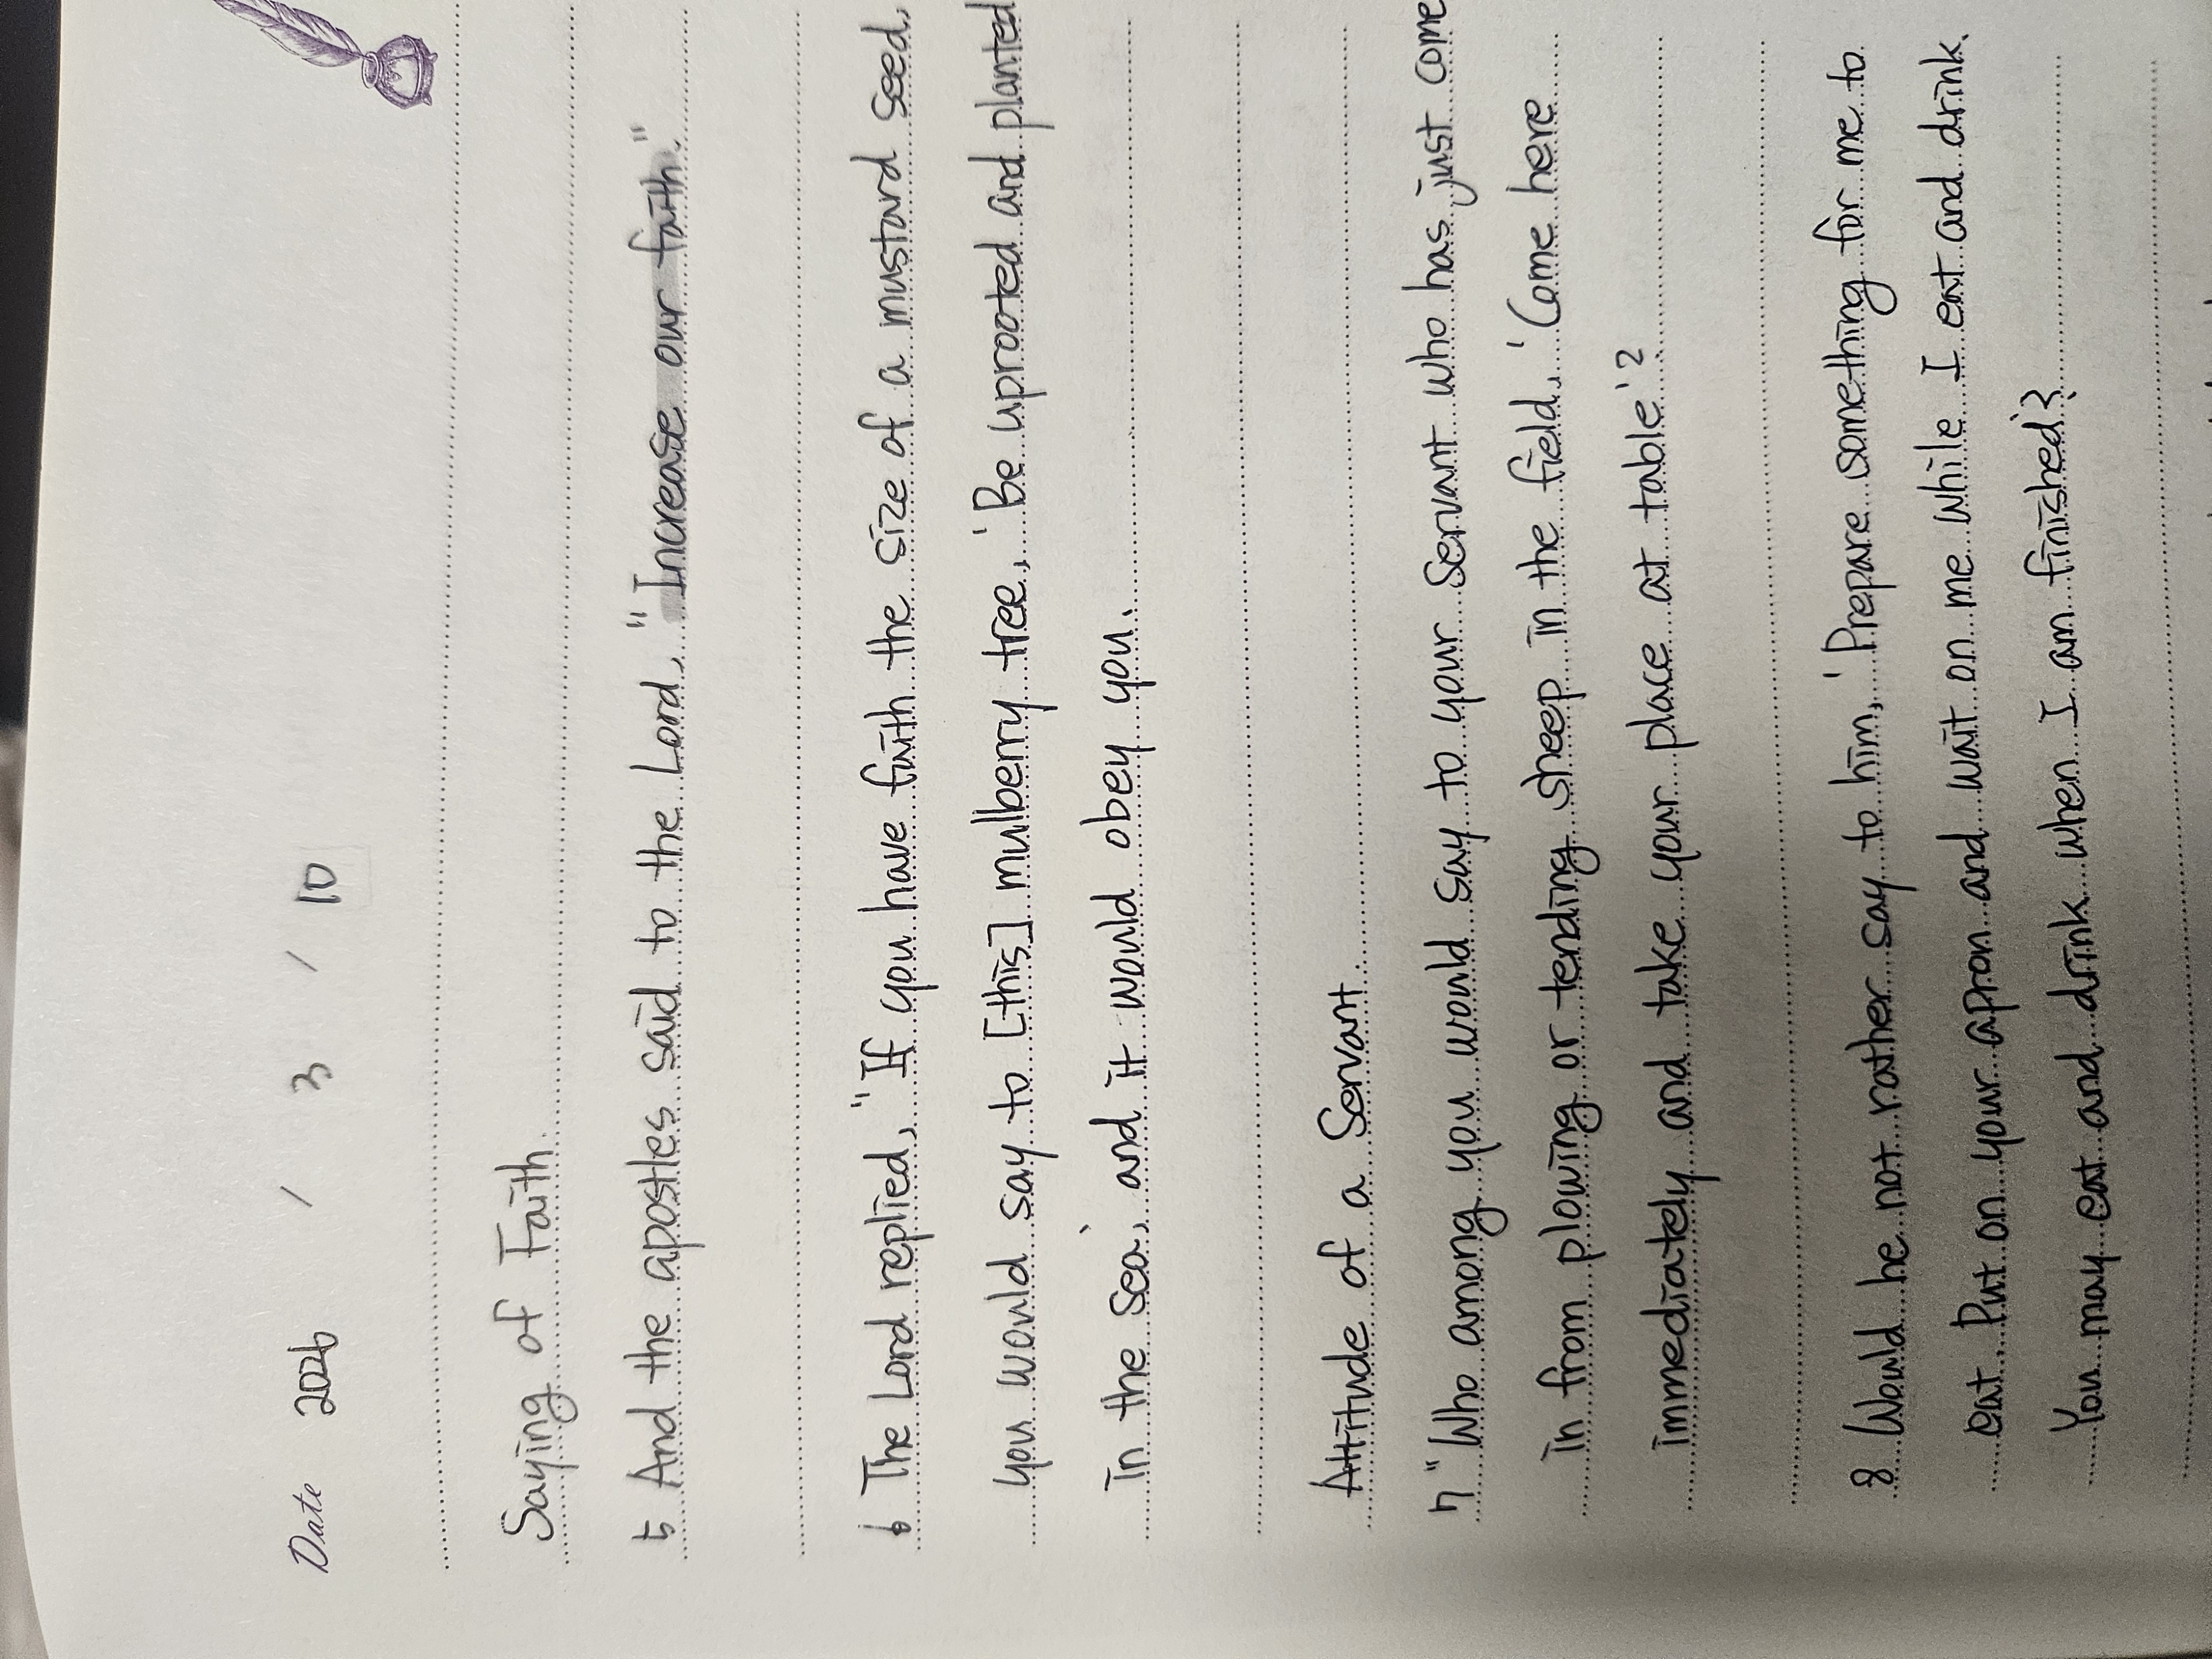 Date 2026 / 3 / 10
Saying of Faith.
5 And the apostles said to the Lord, "Increase our faith."
6 The Lord replied, "If you have faith the size of a mustard seed,
you would say to [this] mulberry tree, 'Be uprooted and planted
in the sea,' and it would obey you.
Attitude of a Servant.
7 "Who among you would say to your servant who has just come
in from plowing or tending sheep in the field, 'Come here
immediately and take your place at table'?
8 Would he not rather say to him, 'Prepare something for me to
eat. Put on your apron and wait on me while I eat and drink.
You may eat and drink when I am finished'?